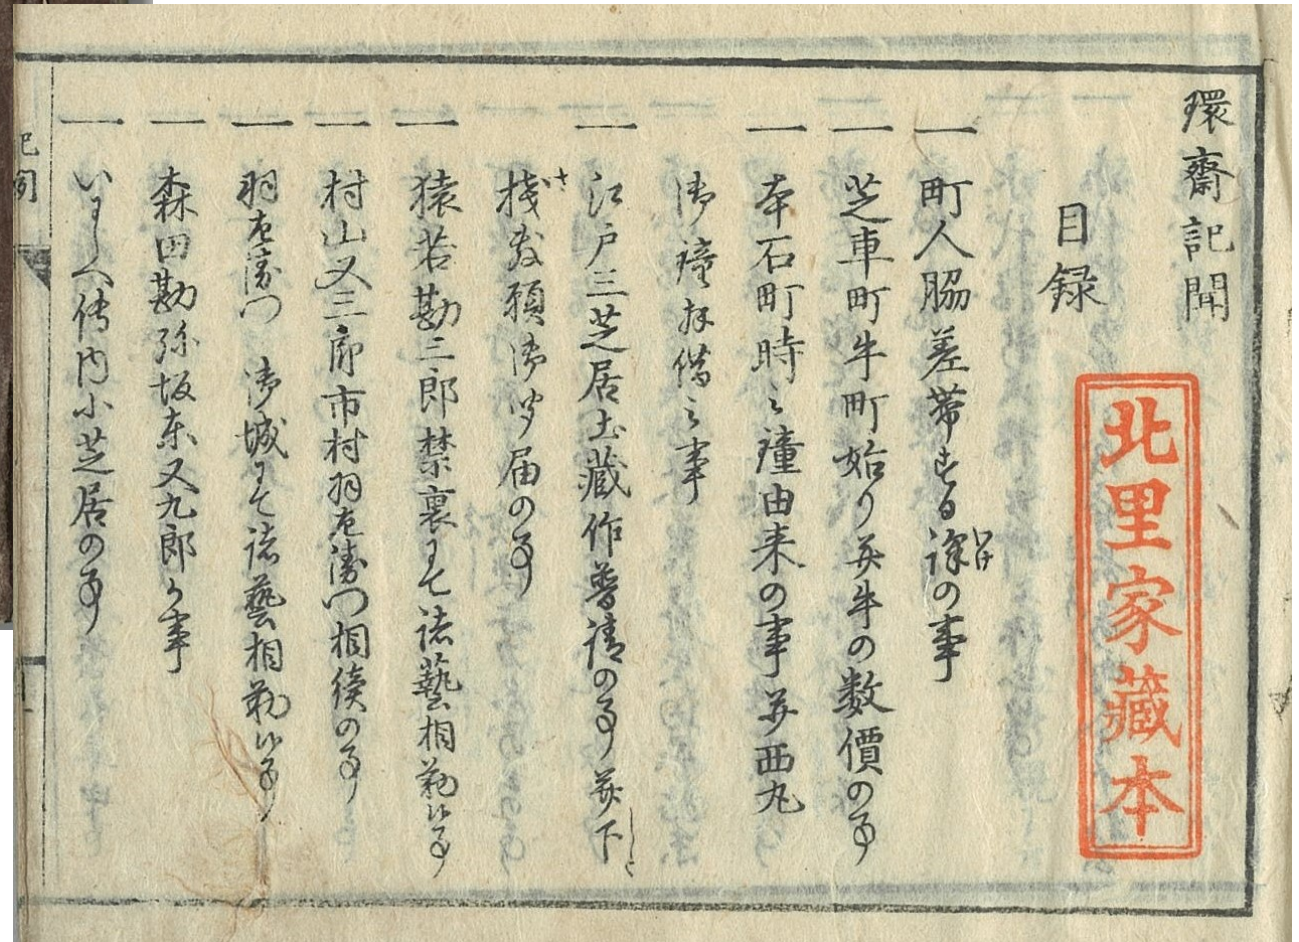 環齋記聞
目録
北里家藏本
一 町人脇差帯する譯の事
わけ
一 芝車町牛町始り并牛の数價の事
一 本石町時之鐘由来の事并西丸
御鐘拝借之事
一 江戸三芝居土藏作普請の事并下
桟敷願御聞届の事
さ
一 猿若勘三郎禁裏にて諸藝相勤候事
一 村山又三郎市村羽左衛門相續の事
一 羽左衛門 御城にて諸藝相勤候事
一 森田勘弥坂東又九郎か事
一 いにしへ傳内小芝居の事
記聞